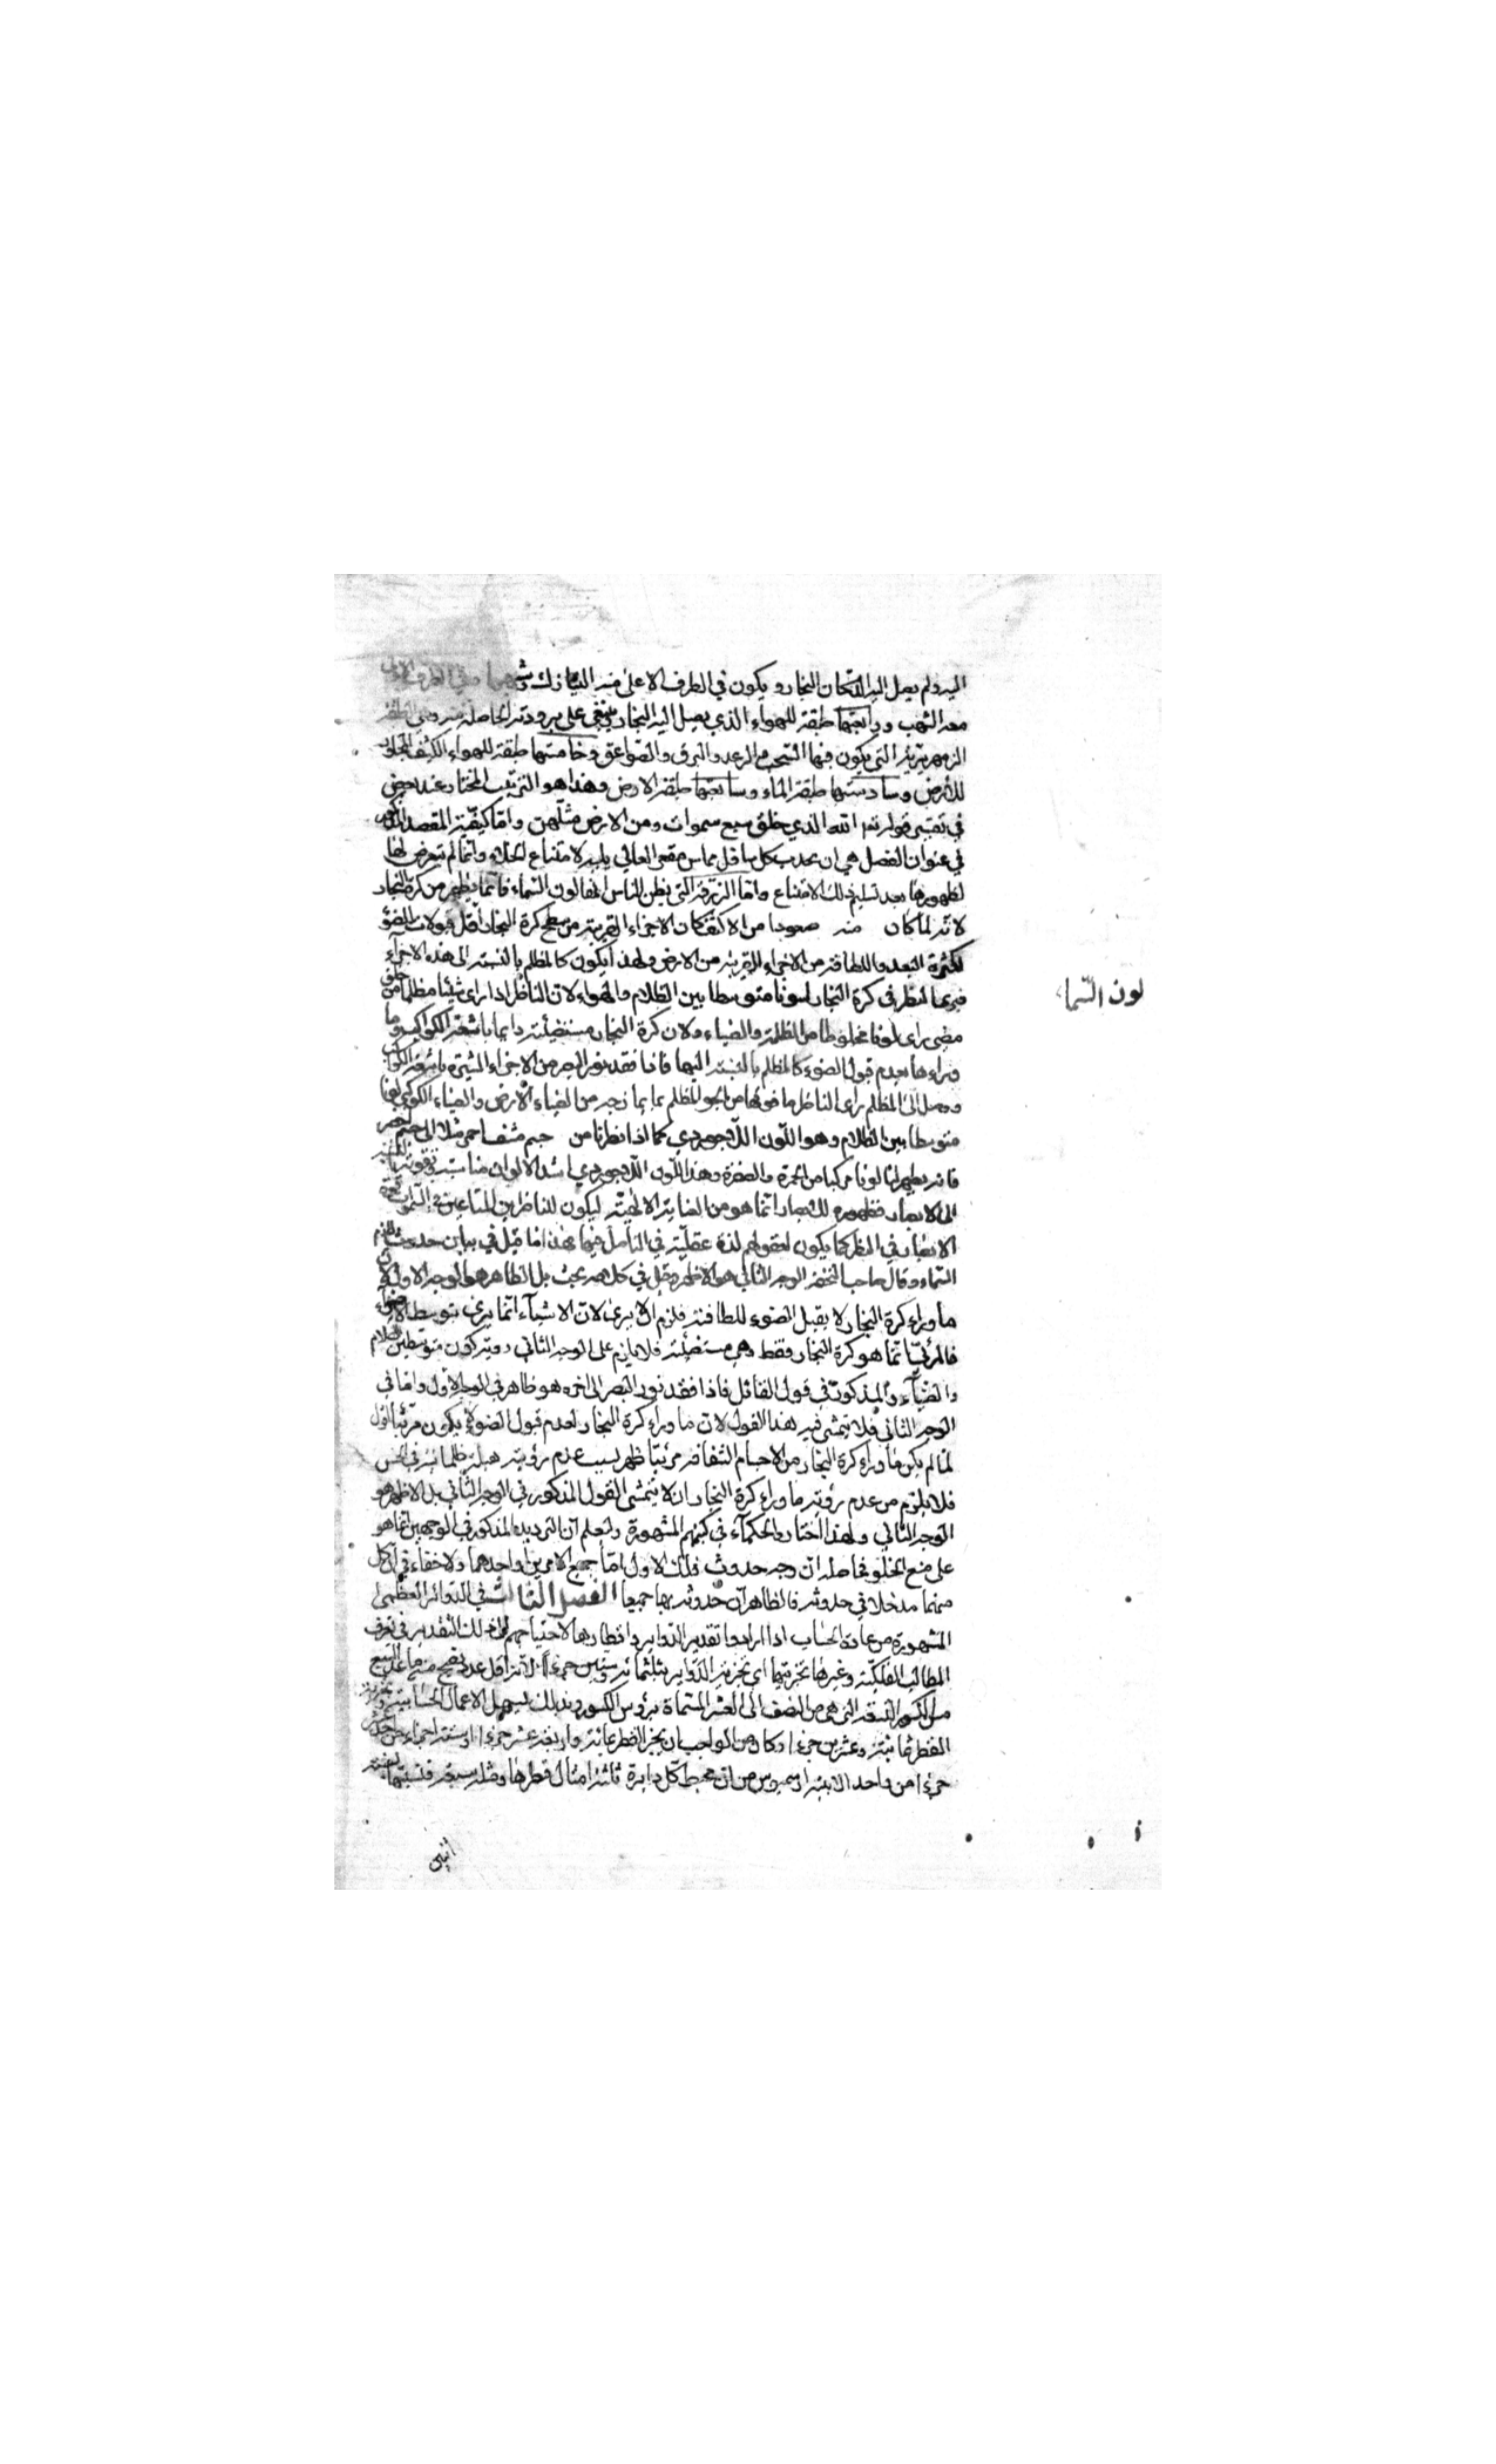 اليه ولم يصل اليه الدخان البخار ويكون في الطرف الاعلى منه النيازك وشبهها وفي الطرف الادنى
معه الشهب ورابعتها طبقة للهواء الذي يصل اليه البخار ويبقى على برودته الحاصلة منه وهي الطبقة
الزمهريرية التي يكون فيها السحب والرعد والبرق والصواعق وخامستها طبقة للهواء الكثيف المجاور
للارض وسادستها طبقة الماء وسابعتها طبقة الارض وهذا هو الترتيب المختار عند بعض
في تفسير قوله تعا الله الذي خلق سبع سموات ومن الارض مثلهن واما كيفية المقصد المذكور
في عنوان الفصل هي ان محدب كل سافل مماس مقعر العالي يليه لامتناع الخلاء وانما لم يتعرض لها
لظهورها بعد تسليم ذلك الامتناع واما الزرقة التي يظن الناس انها لون السماء فانما يظهر من كرة البخار
لانه لما كان منه صعودا من الاكثف كان الاجزاء القريبة من سطح كرة البخار اقل قبولا للضوء
لكثرة البعد واللطافة من الاجزاء القريبة من الارض ولهذا يكون كالمظلم بالنسبة الى هذه الاجزاء
فيرى الناظر في كرة البخار لونا متوسطا بين الظلام والهواء لان الناظر اذا راى شيئا مظلما من خلف
لون السماء
مضي راى لونا مخلوطا من الظلمة والضياء ولان كرة البخار مستضيئة دايما باشعة الكواكب وما
وراءها بعدم قبول الضوء كالمظلم بالنسبة اليها فاذا نفذ نور البصر من الاجزاء المستنيرة باشعة الكواكب
ووصل الى المظلم راى الناظر ما فوقها من الجو المظلم بما يمازجه من الضياء الارض والضياء الكوكبي لونا
متوسطا بين الظلام وهو اللون اللاجوردي كما اذا نظرنا من جسم مشف احمر مثلا الى جسم اخضر
فانه يظهر لنا لونا مركبا من الحمرة والخضرة وهذا اللون اللاجوردي اشد الالوان مناسبة وتقوية بالنسبة
الى الابصار فظهوره للابصار انما هو من العناية الالهية ليكون للناظرين المتاملين في السموات
الابصار في النظر كما يكون لعقولهم لذة عقلية في التامل فيها هذا ما قيل في بيان حدوث اللون
السماء وقال صاحب التحفة الوجه الثاني هو الاظهر وقيل في كلامه بحث بل الظاهر هو الوجه الاول لان
ما وراء كرة البخار لا يقبل الضوء للطافته فلزم ان لا يرى لان الاشياء انما يرى بتوسط الاضواء
فالمرئي انما هو كرة البخار فقط وهي مستضيئة فلا يلزم على الوجه الثاني رؤية كون متوسط بين الظلام
والضياء والمذكور في قول القائل فاذا نفذ نور البصر الى اخره هو ظاهر في الوجه الاول واما في
الوجه الثاني فلا يتمشى فيه هذا القول لان ما وراء كرة البخار لعدم قبول الضوء لا يكون مرئيا اقول
لما لم يكن ما وراء كرة البخار من الاجسام الشفافة مرئيا ظهر بسبب عدم رؤيته ظلمانية في الحس
فلا يلزم من عدم رؤية ما وراء كرة البخار ان لا يتمشى القول المذكور في الوجه الثاني بل الاظهر هو
الوجه الثاني ولهذا اختاره الحكماء في كتبهم المشهورة وليعلم ان الترديد المذكور في الوجهين انما هو
على منع الخلو فحاصله ان وجه حدوث ذلك الاول اما جميع الامرين او احدهما ولا خفاء في ان كل
منهما مدخلا في حدوثه فالظاهر ان حدوثه بهما جميعا الفصل الثالث في الدوائر العظمى
المشهورة من عادة الحساب اذا ارادوا تقدير الدواير واقطارها لاحتياجهم الى ذلك التقدير في تعرف
المطالب الفلكية وغيرها تجزيتها اى تجزية الدواير بثلثمائة وستين جزءا لانه اقل عدد يصح منه ما عدا السبع
من الكسور التسعة التي هي من النصف الى العشر المسماة برؤس الكسور وبذلك يسهل الاعمال الحسابية وتجزية
القطر بمائة وعشرين جزءا وكان من الواجب ان يجزا القطر بمائة واربعة عشر جزءا وستة اجزاء من احد عشر
جزءا من واحد لابانة ارشميدس من ان محيط كل دايرة ثلثة امثال قطرها ومثل سبعه فنسبتها كنسبة
اثنين